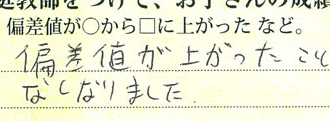 庭教師をつけて、お子さんの成績
偏差値が○から□に上がった など。
偏差値が上がったこと
なしなりました